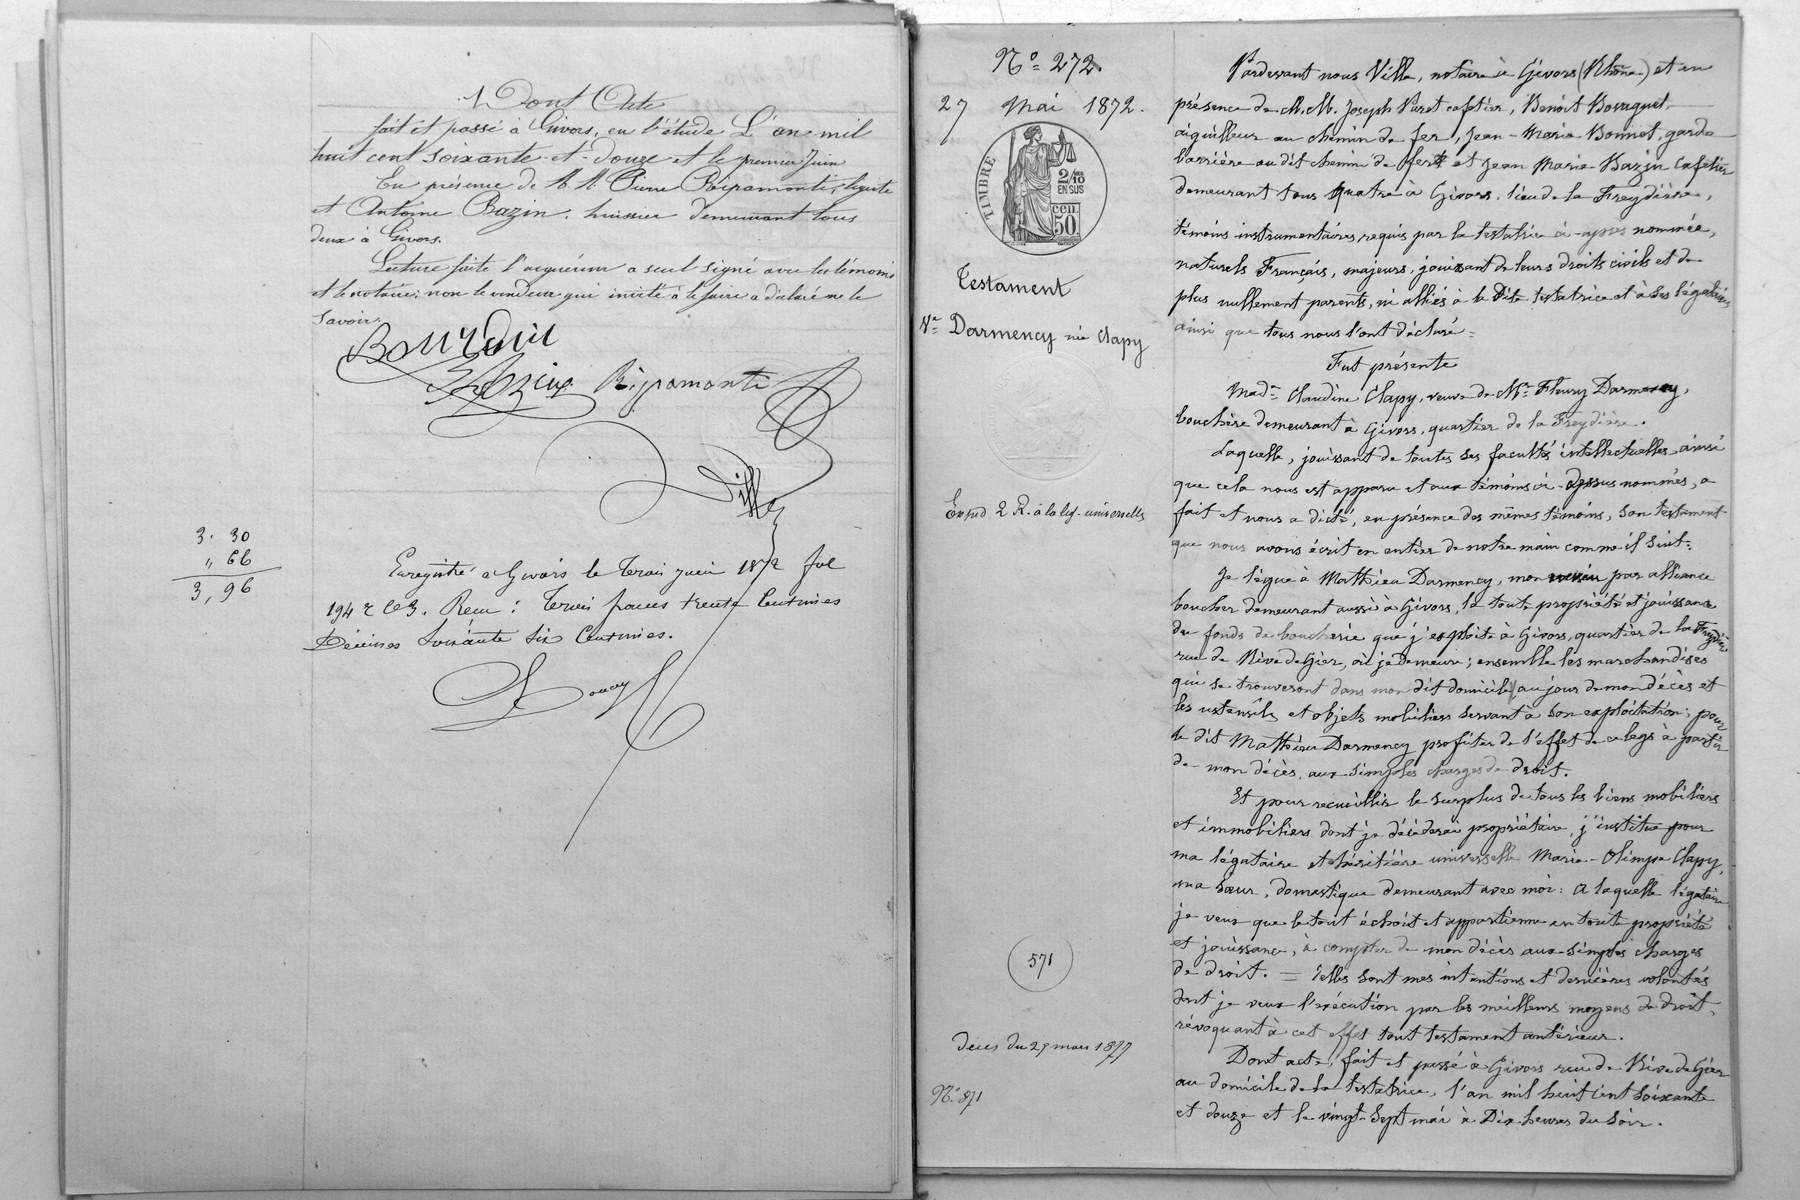 Dont Acte
fait et passé à Givors, en l'étude L'an mil
huit cent soixante et douze et le premier Juin
En présence de M.M. Pierre Ripamonti,
et Antoine Bazin, huissier demeurant tous
deux à Givors.
Lecture faite l'acquéreur a seul signé avec les témoins
et le notaire; non le vendeur qui invité à le faire a déclaré ne le
savoir.
Bourdin
Bazin Ripamonti
Ville
3. 30
" 66
3, 96
Enregistré à Givors le trois juin 1872 fol
194 r c 3. Reçu: trois francs trente centimes
Décimes soixante six centimes.
No= 272.
27 Mai 1872.
TIMBRE
2/10
EN SUS
cen.
50.
Testament
Ve Darmency née Clapy
Exped 2 R. à la leg. universelle
571
Décès du 29 mars 1877
No. 571
Pardevant nous Ville, notaire à Givors (Rhône) et en
présence de M.M. Joseph Puret cafetier, Benoît Bouvagnet,
aiguilleur au chemin de fer, Jean-Marie Bonnot, garde
barrière au dit chemin de fer et Jean Marie Bazin cafetier
demeurant tous quatre à Givors, lieu de la Freydière,
témoins instrumentaires requis par la testatrice ci-après nommée,
naturels Français, majeurs, jouissant de leurs droits civils et de
plus nullement parents, ni alliés à la dite testatrice et à ses légataires
ainsi que tous nous l'ont déclaré =
Fut présente
Made Claudine Clapy, veuve de Mr Fleury Darmency,
bouchère demeurant à Givors, quartier de la Freydière.
Laquelle, jouissant de toutes ses facultés intellectuelles ainsi
que cela nous est apparu et aux témoins ci-dessus nommés, a
fait et nous a dicté, en présence des mêmes témoins, son testament
que nous avons écrit en entier de notre main comme il suit:
Je lègue à Mathieu Darmency, mon neveu par alliance
boucher demeurant aussi à Givors, la toute propriété et jouissance
du fonds de boucherie que j'exploite à Givors, quartier de la Freydière
rue de Rive de Gier, où je demeure; ensemble les marchandises
qui se trouveront dans mon dit domicile au jour de mon décès et
les ustensils et objets mobiliers servant à son exploitation; pour
le dit Mathieu Darmency profiter de l'effet de ce legs à partir
de mon décès, aux simples charges de droit.
Et pour recueillir le surplus de tous les biens mobiliers
et immobiliers dont je décèderai propriétaire, j'institue pour
ma légataire et héritière universelle Marie-Olimpe Clapy,
ma sœur, domestique demeurant avec moi: A laquelle légataire
je veux que le tout échoit et appartienne en toute propriété
et jouissance, à compter de mon décès aux simples charges
de droit. = Telles sont mes intentions et dernières volontés
dont je veux l'exécution par les meilleurs moyens de droit,
révoquant à cet effet tout testament antérieur.
Dont acte, fait et passé à Givors rue de Rive de Gier
au domicile de la testatrice, l'an mil huit cent soixante
et douze et le vingt sept mai à dix heures du soir.